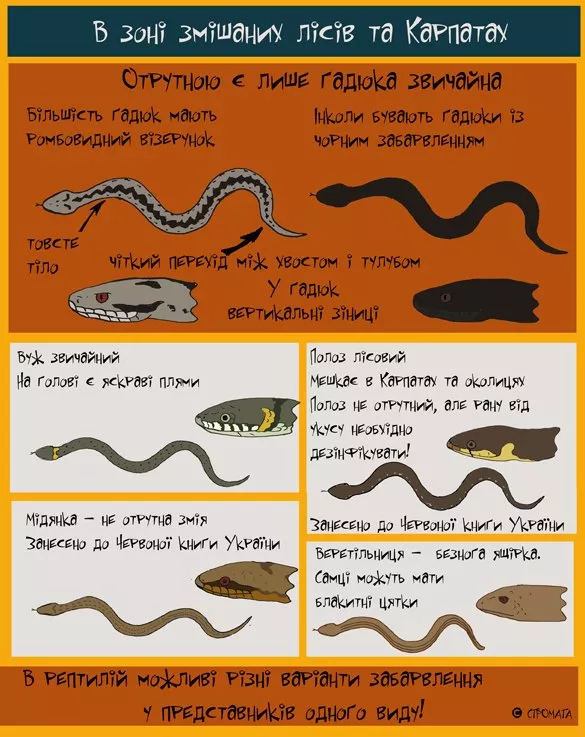 В зоні змішаних лісів та Карпатах
Отрутною є лише гадюка звичайна
Більшість гадюк мають
ромбовидний візерунок
Інколи бувають гадюки із
чорним забарвленням
товсте
тіло
чіткий перехід між хвостом і тулубом
У гадюк
вертикальні зіниці
Вуж звичайний
На голові є яскраві плями
Полоз лісовий
Мешкає в Карпатах та околицях
Полоз не отрутний, але рану від
укусу необхідно
дезінфікувати!
Занесено до Червоної книги України
Мідянка – не отрутна змія
Занесено до Червоної книги України
Веретільниця – безнога ящірка.
Самці можуть мати
блакитні цятки
В рептилій можливі різні варіанти забарвлення
у представників одного виду!
© СТРОМАТА